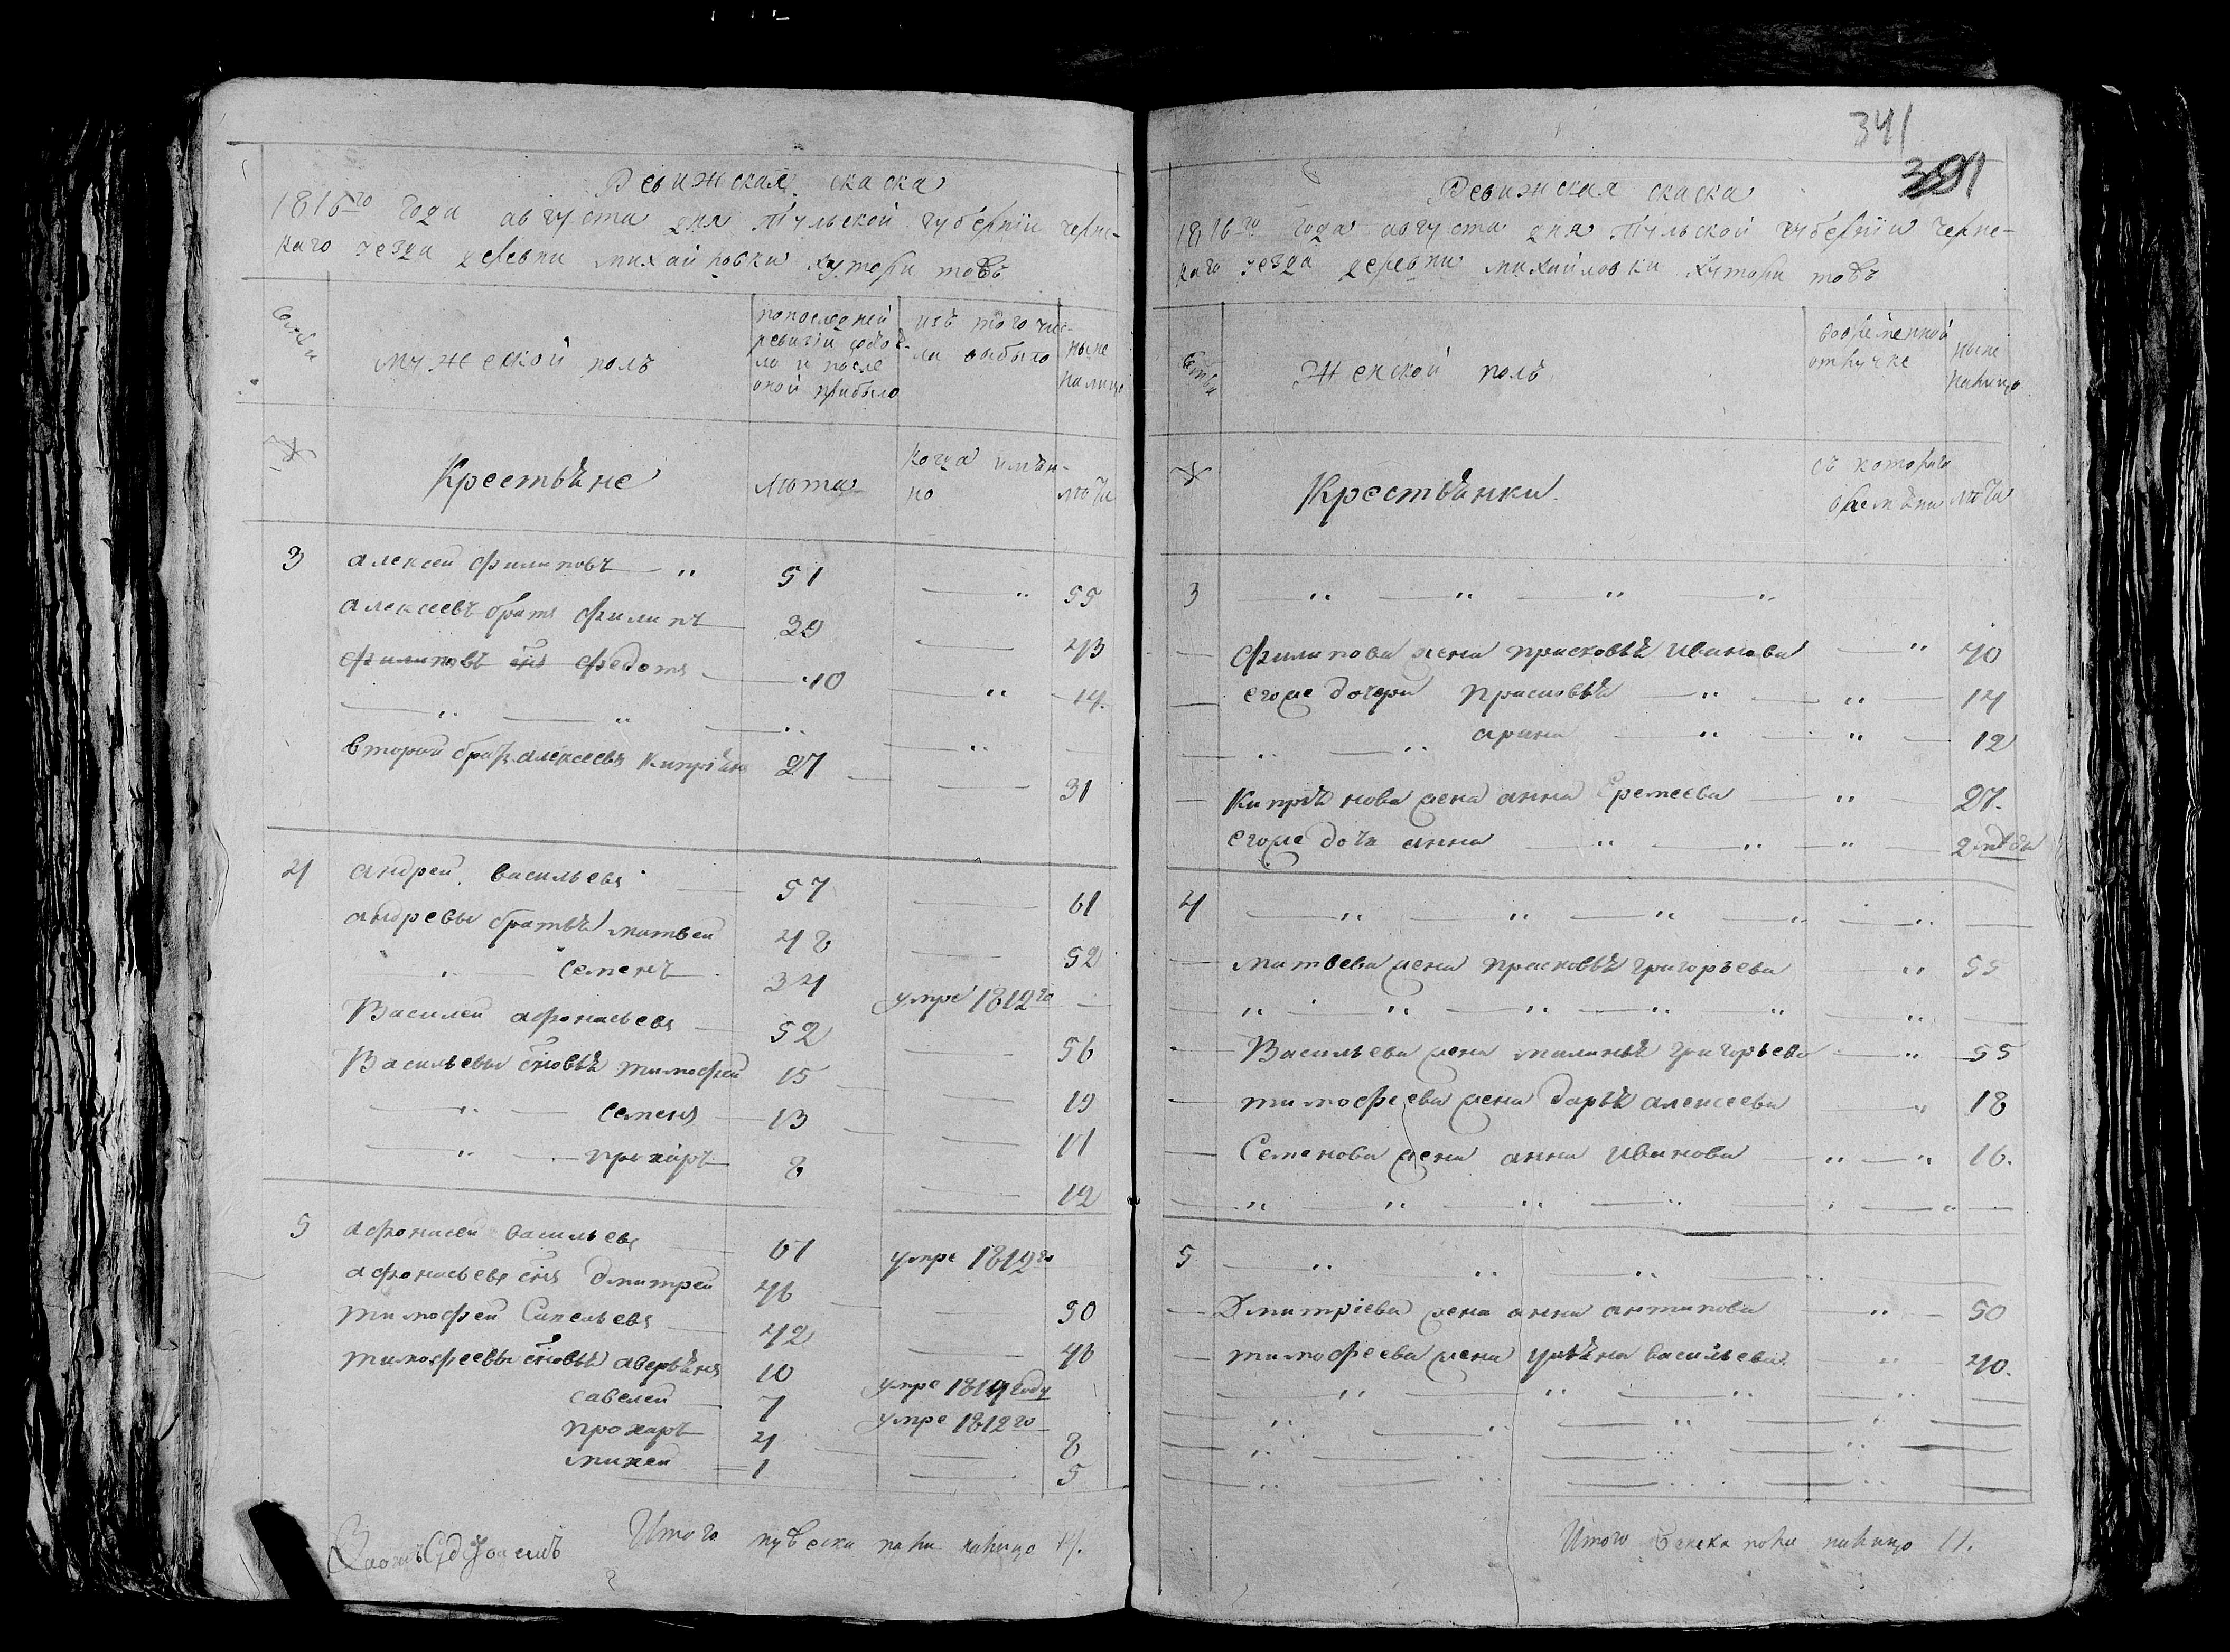 Ревижская скаска
1816го года августа дня Тульской губернїи Черне-
каго уезда деревни Михайловки хутори тожъ
Семьи
мужеской полъ
попоследней
ревизїи состоя-
ло и после
оной прибыло
изъ того чис-
ла выбыло
ныне
налицо
№
Крестьѣне
Лѣта
когда имѣн-
но
лѣта
3 алексеи филиповъ 51 55
алексеевъ братъ филипъ 39 43
филиповъ снъ федотъ 10 14.
второй братъ алексеевъ Кипрїѣнъ 27 31
4 андреи васильевъ 57 61
андревы братьѣ матвеи 48 52
семенъ 34 умре 1812го
Василеи афонасьевъ 52 56
Васильевы сновьѣ тимофеи 15 19
семенъ 13 17
прохаръ 8 12
5 афонасеи васильевъ 61 умре 1812го
афонасьевъ снъ дмитреи 46 50
тимофеи Савельевъ 42 46
тимофеевы сновьѣ аверьѣнъ 10 умре 1814году
савелеи 7 умре 1812го
прохаръ 4 8
михеи 1 5
Итого мужеска пола налицо 14.
341
Ревижская скаска
1816го года августа дня Тульской губернїи Черне-
каго уезда деревни Михайловки хутори тожъ
Семьи
Женской полъ
вовременной
отлучке
ныне
налицо
№
Крестьѣнки.
съ котораго
времѣни
лѣта
3
филипова жена прасковьѣ иванова 40
егоже дочери прасковьѣ 14
арина 12
Кипрїѣнова жена анна Еремеева 27.
егоже дочь анна 2 года
4
матвева жена прасковьѣ григорьева 55
Васильева жена маланьѣ григорьева 55
тимофеева жена дарьѣ алексеева 18
Семенова жена анна иванова 16.
5
Дмитрїева жена анна антипова 50
тимофеева жена ульѣна васильева 40.
Итого женска пола налицо 11.